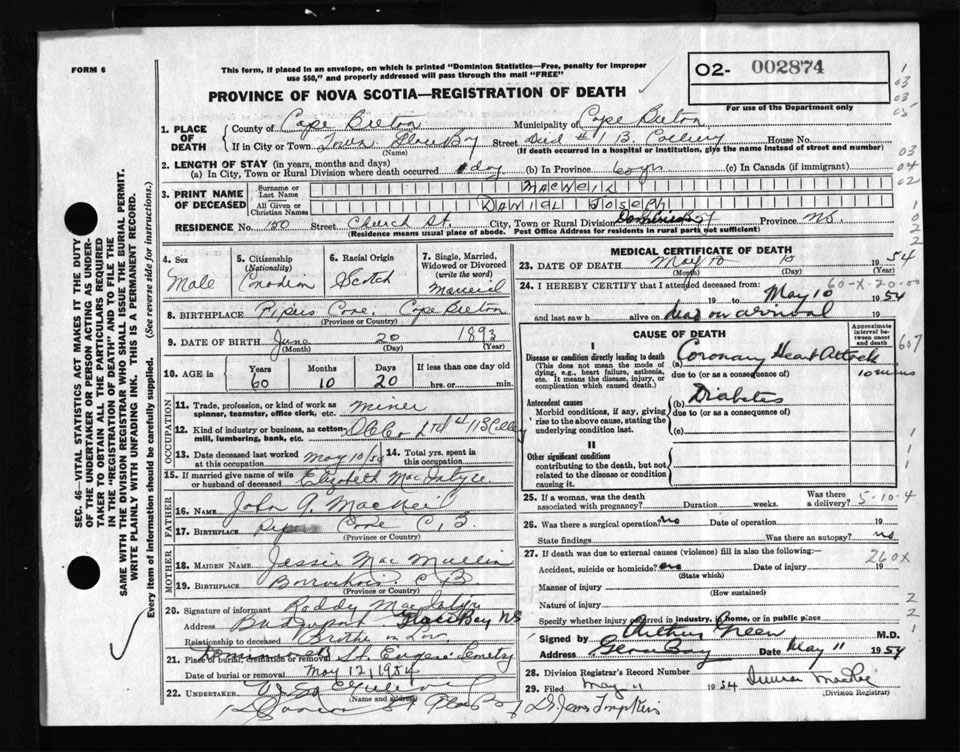 FORM 6
This form, if placed in an envelope, on which is printed "Dominion Statistics—Free, penalty for improper
use $50," and properly addressed will pass through the mail "FREE"
O2- 002874
For use of the Department only
PROVINCE OF NOVA SCOTIA—REGISTRATION OF DEATH
1. PLACE OF DEATH
County of Cape Breton Municipality of Cape Breton
If in City or Town Town Glace Bay Street died # 1B Colliery House No.
(Name) (If death occurred in a hospital or institution, give the name instead of street and number)
2. LENGTH OF STAY (in years, months and days)
(a) In City, Town or Rural Division where death occurred 1 day (b) In Province 60 yr (c) In Canada (if immigrant)
3. PRINT NAME OF DECEASED
Surname or Last Name MACNEIL
All Given or Christian Names DANIEL JOSEPH
RESIDENCE No. 130 Street Church St. City, Town or Rural Division Dominion Province NS.
(Residence means usual place of abode. Post Office Address for residents in rural parts not sufficient)
4. Sex
Male
5. Citizenship
(Nationality)
Canadian
6. Racial Origin
Scotch
7. Single, Married,
Widowed or Divorced
(write the word)
Married
8. BIRTHPLACE Pipers Cove, Cape Breton
(Province or Country)
9. DATE OF BIRTH June 20 1893
(Month) (Day) (Year)
10. AGE in
Years Months Days If less than one day
60 10 20 hrs. or min.
OCCUPATION
11. Trade, profession, or kind of work as
spinner, teamster, office clerk, etc. miner
12. Kind of industry or business, as cotton-
mill, lumbering, bank, etc.
13. Date deceased last worked
at this occupation May 10/54
14. Total yrs. spent in
this occupation
15. If married give name of wife
or husband of deceased Elizabeth MacIntyre
FATHER
16. Name John A. MacNeil
17. Birthplace Cove C. B.
(Province or Country)
MOTHER
18. MAIDEN NAME Jessie MacMullin
19. BIRTHPLACE C B.
(Province or Country)
20. Signature of informant Roddy MacIntyre
Address Bridgeport Glace Bay NS
Relationship to deceased Brother in Law
21. Place of burial, cremation or removal St. Eugene Cemetery
Date of burial or removal May 12, 1954
22. UNDERTAKER
(Name and address)
MEDICAL CERTIFICATE OF DEATH
23. DATE OF DEATH May 10 10 1954
(Month) (Day) (Year)
60-X-20-00
24. I HEREBY CERTIFY that I attended deceased from:
19 to May 10 1954
and last saw h alive on dead on arrival
CAUSE OF DEATH
Approximate interval between onset and death
607
I
Disease or condition directly leading to death
(This does not mean the mode of
dying, e.g., heart failure, asthenia,
etc. It means the disease, injury, or
complication which caused death.)
(a) Coronary Heart Attack
due to (or as a consequence of) 10 mins
Antecedent causes
Morbid conditions, if any, giving
rise to the above cause, stating the
underlying condition last.
(b) Diabetes
due to (or as a consequence of)
(c)
II
Other significant conditions
contributing to the death, but not
related to the disease or condition
causing it.
25. If a woman, was the death
associated with pregnancy? Duration weeks. Was there a delivery?
5-10-4
26. Was there a surgical operation? no Date of operation 19
State findings Was there an autopsy? no
27. If death was due to external causes (violence) fill in also the following:—
260x
Accident, suicide or homicide? no Date of injury 19
(State which)
Manner of injury
(How sustained)
Nature of injury
Specify whether injury occurred in industry, in home, or in public place
Signed by Arthur Green M.D.
Address Glace Bay Date May 11 1954
28. Division Registrar's Record Number
29. Filed May 11 1954
(Division Registrar)
Dr. James Tompkins
SEC. 46—VITAL STATISTICS ACT MAKES IT THE DUTY
OF THE UNDERTAKER OR PERSON ACTING AS UNDER-
TAKER TO OBTAIN ALL THE PARTICULARS REQUIRED
IN THE "REGISTRATION OF DEATH" AND TO FILE THE
SAME WITH THE DIVISION REGISTRAR WHO SHALL ISSUE THE BURIAL PERMIT.
WRITE PLAINLY WITH UNFADING INK. THIS IS A PERMANENT RECORD.
Every item of information should be carefully supplied. (See reverse side for instructions.)